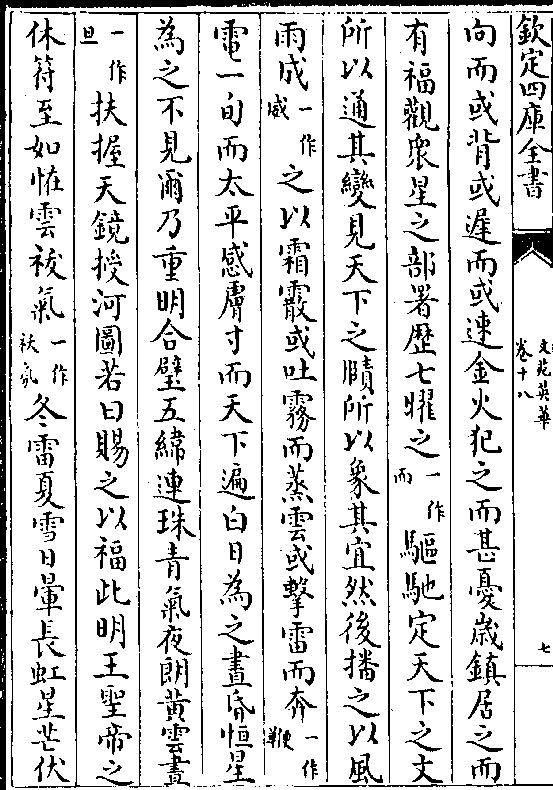 欽定四庫全書
文苑英華
卷十八
七
向而或背或遲而或速金火犯之而甚憂歲鎮居之而
有福觀衆星之部署歷七曜之一作而驅馳定天下之文
所以通其變見天下之賾所以象其宜然後播之以風
雨成一作威之以霜霰或吐霧而蒸雲或擊雷而奔一作鞭
電一旬而太平感膚寸而天下遍白日為之晝昏恒星
為之不見爾乃重明合璧五緯連珠青氣夜朗黄雲晝
一作旦扶握天鏡授河圖若曰賜之以福此明王聖帝之
休符至如恠雲祲氣一作祅氛冬雷夏雪日暈長虹星芒伏